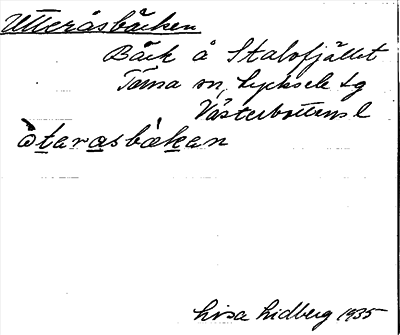 Utteråsbäcken
Bäck å Stalofjället
Tärna sn, Lycksele lg
Västerbottens l
òtarasbäkan
Lisa Lidberg 1935